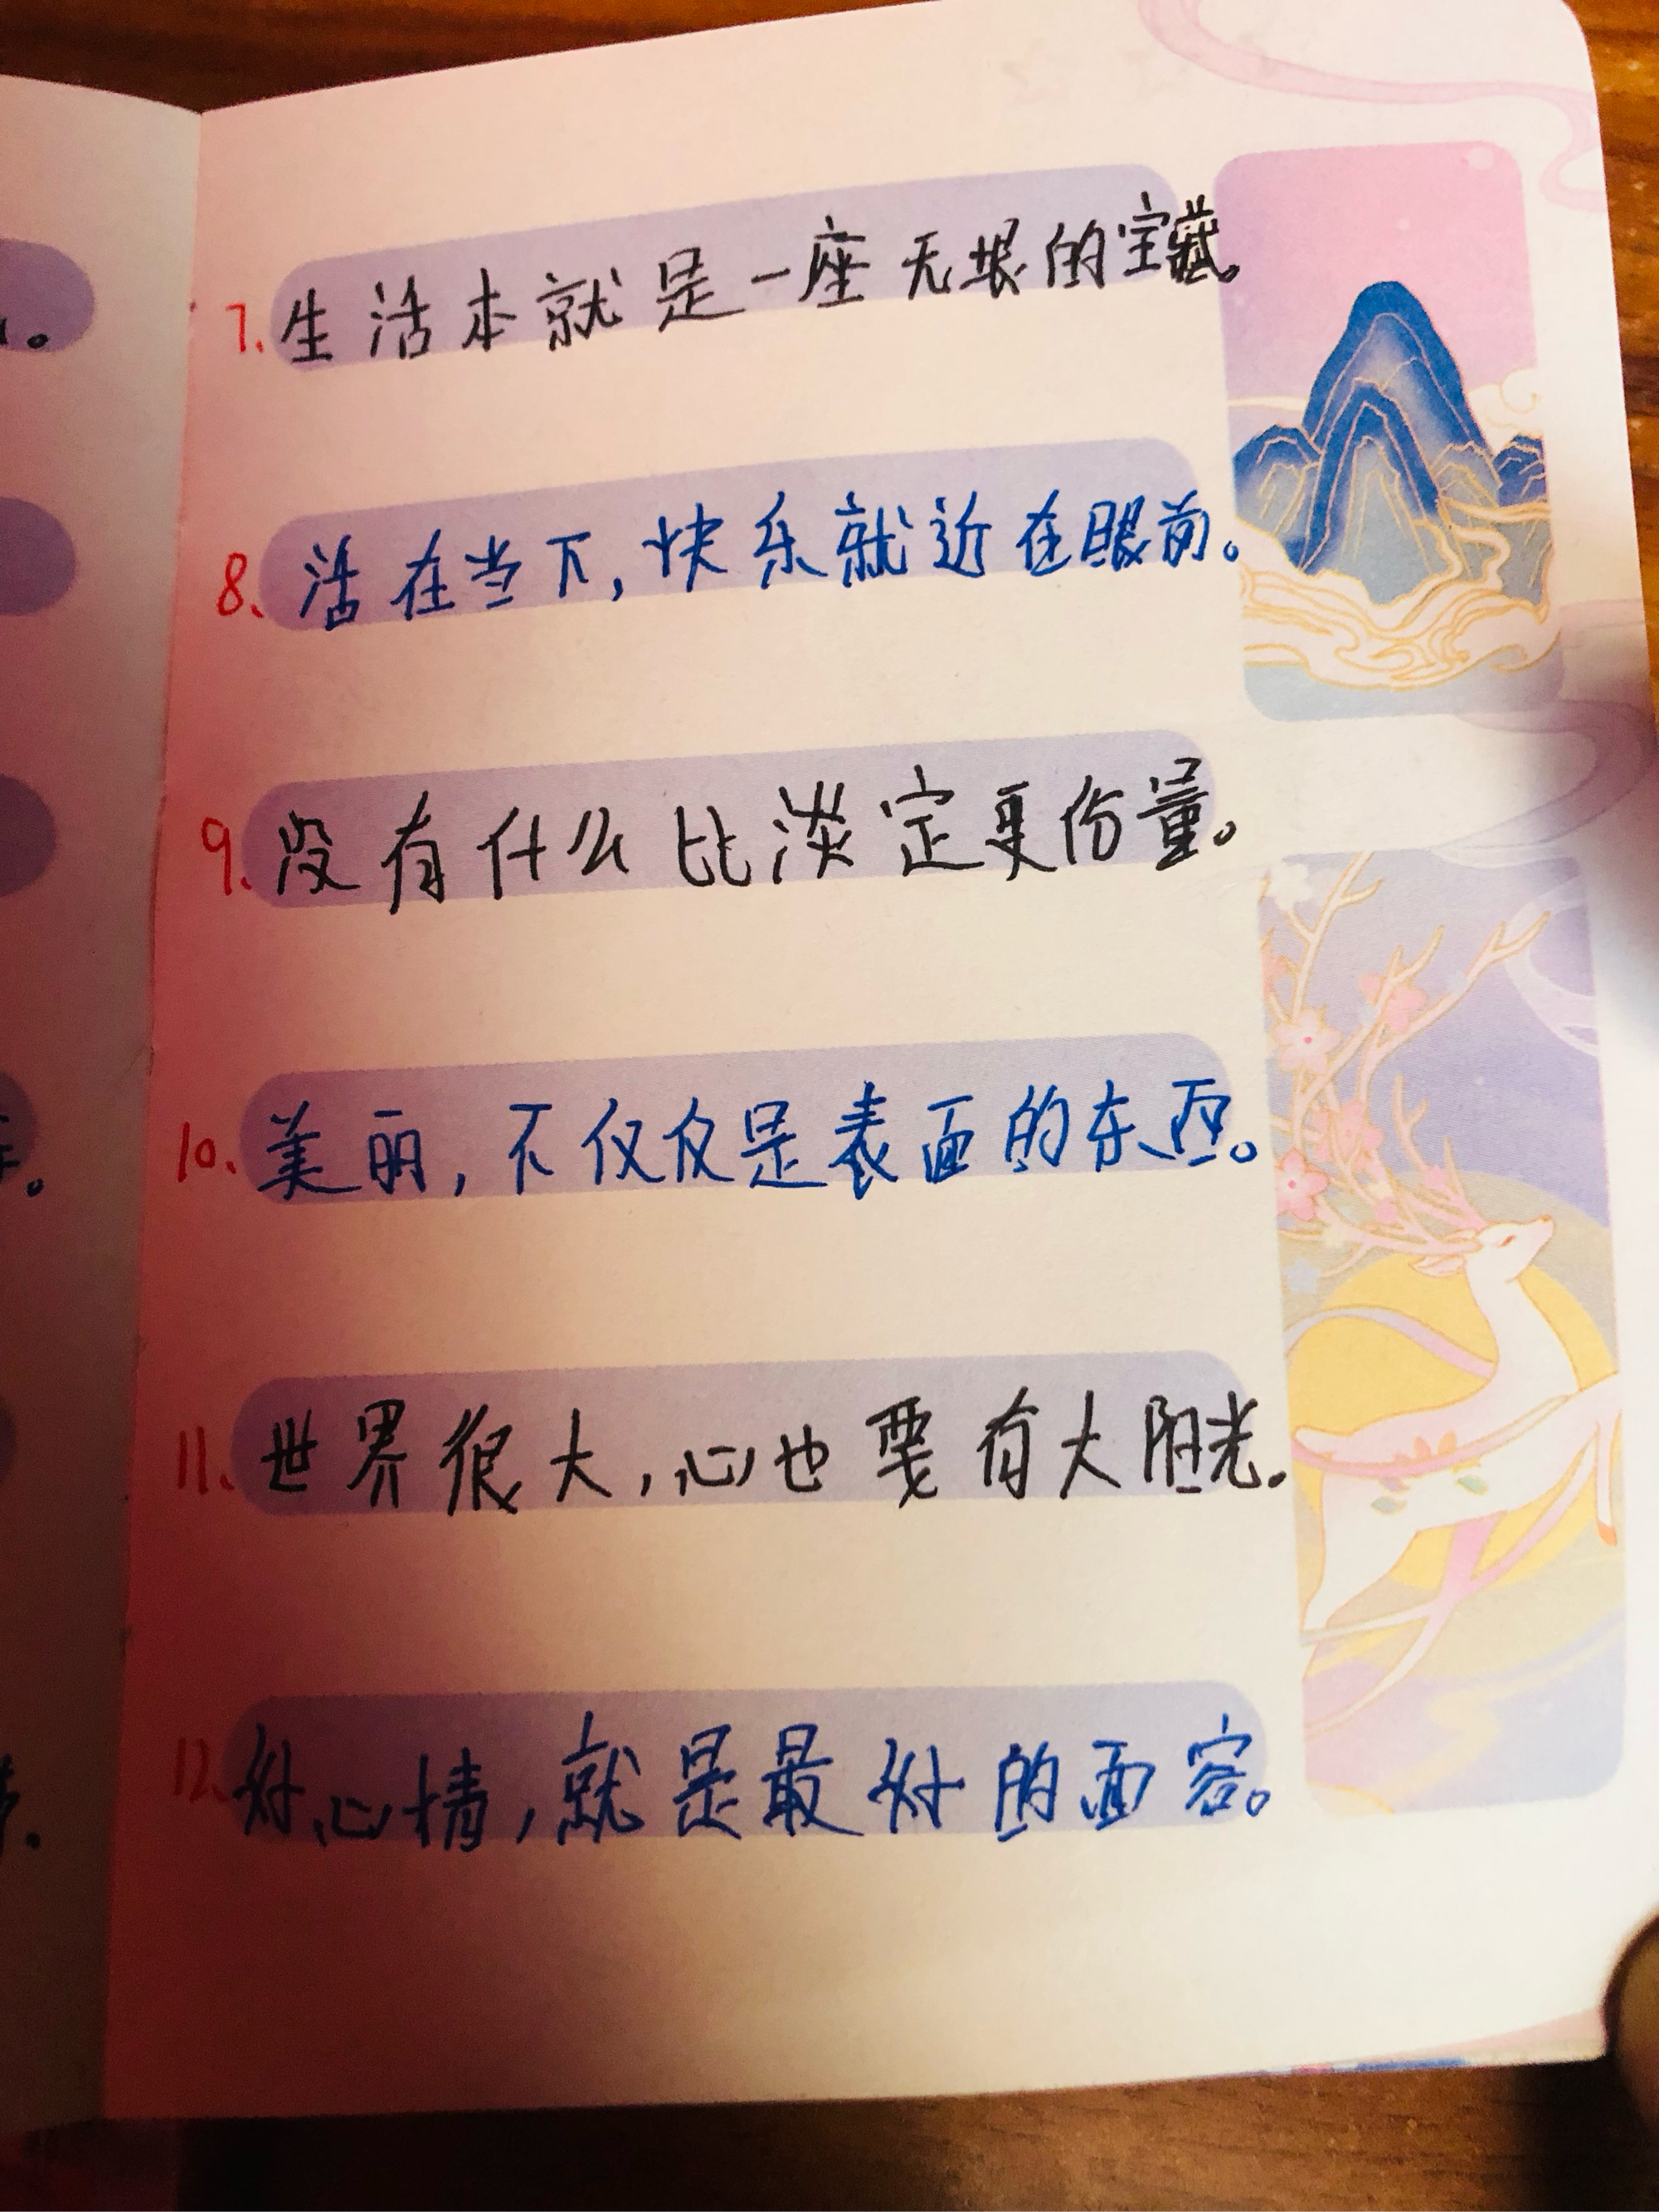 7.生活本就是一座无垠的宝藏。
8、活在当下,快乐就近在眼前。
9.没有什么比淡定更份量。
10、美丽,不仅仅是表面的东西。
11.世界很大,心也要有大阳光.
12.好心情,就是最好的面容。